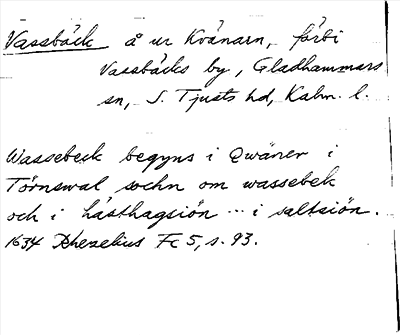 Vassbäck å ur Kvänarn, förbi
Vassbäcks by, Gladhammars
sn, S. Tjusts hd, Kalm. l.
Wassebeck begyns i Qwäner i
Törnswal sochn om wassebek
och i hästhagsiön ... i saltsiön.
1634 Rhezelius Fc 5, s. 93.